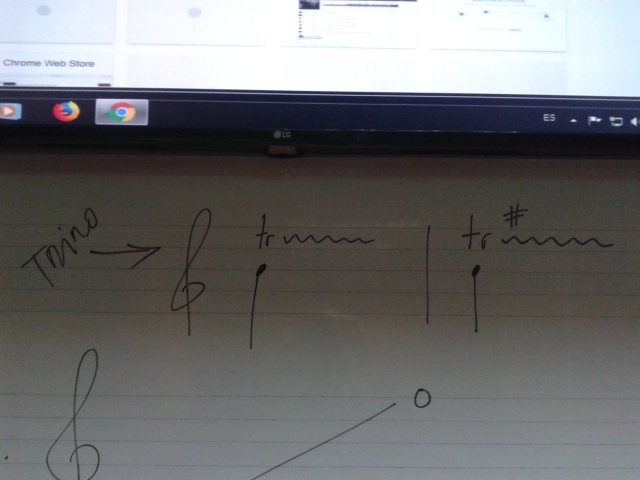 Chrome Web Store
ES
LG
Trino
tr
tr #